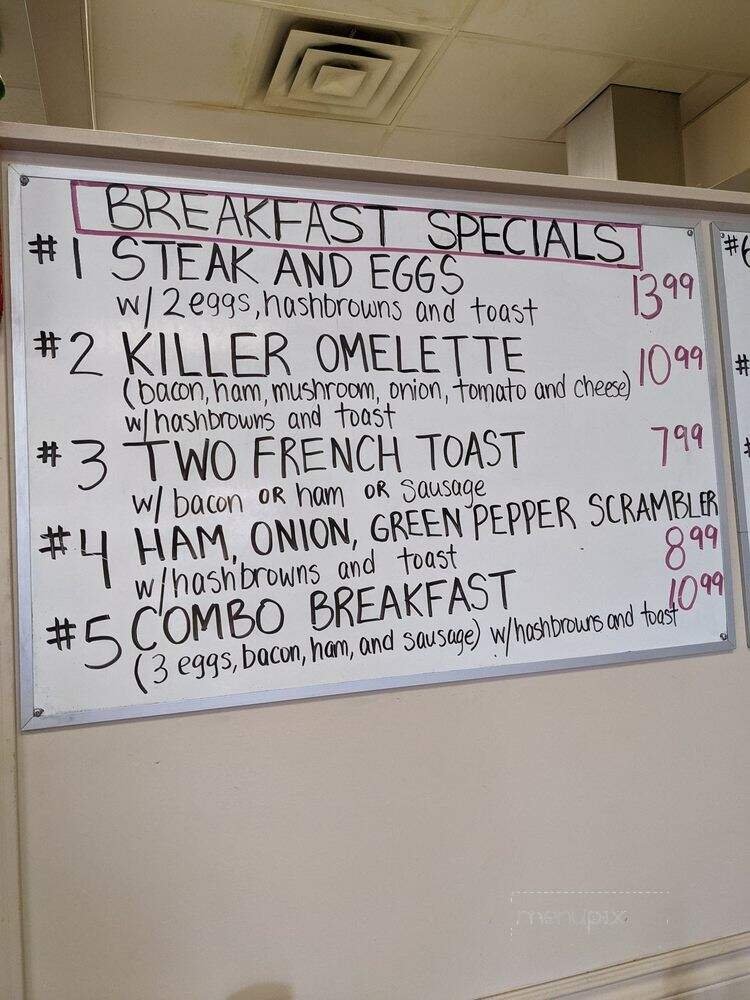 BREAKFAST SPECIALS
#1 STEAK AND EGGS 13.99
w/ 2 eggs, hashbrowns and toast
#2 KILLER OMELETTE 10.99
(bacon, ham, mushroom, onion, tomato and cheese)
w/hashbrowns and toast
#3 TWO FRENCH TOAST 7.99
w/ bacon OR ham OR Sausage
#4 HAM, ONION, GREEN PEPPER SCRAMBLER
w/hashbrowns and toast 8.99
#5 COMBO BREAKFAST 10.99
(3 eggs, bacon, ham, and sausage) w/hashbrowns and toast
#6
#
menupix